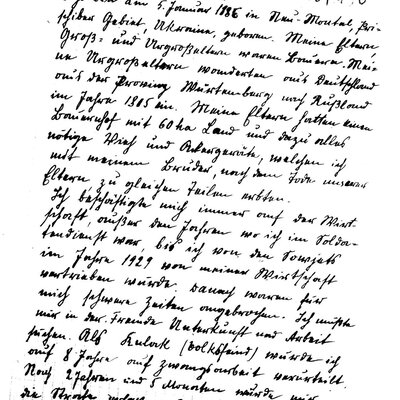 am 5. Januar 1886 in Neu-Montal, Beri-
schiber Gebiet, Ukraine, geboren. Meine Eltern,
Groß- und Urgroßeltern waren Bauern. Mei-
ne Urgroßeltern wanderten aus Deutschland
aus der Provinz Würtemburg nach Rußland
im Jahre 1815 ein. Meine Eltern hatten einen
Bauernhof mit 60 ha Land und dazu alles
nötige Vieh und Ackergeräte, welchen ich
mit meinem Bruder, nach dem Tode unserer
Eltern, zu gleichen Teilen erbten.
Ich beschäftigte mich immer auf der Wirt-
schaft, außer den Jahren wo ich im Solda-
tendienst war, bis ich von den Sowjets
im Jahre 1929 von meiner Wirtschaft
vertrieben wurde. Danach waren für
mich schwere Zeiten angebrochen. Ich mußte
mir in der Fremde Unterkunft und Arbeit
suchen. Als Kulak (Volksfeind) wurde ich
auf 8 Jahre auf Zwangsarbeit verurteilt.
Nach 2 Jahren und 5 Monaten wurde mir
die Strafe